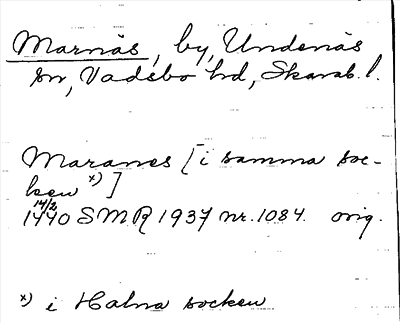 Marnäs, by, Undenäs
sn, Vadsbo hd, Skarab. l.
Maranes [i samma soc-
ken x)]
14/2
1440 SMR 1937 nr. 1084. orig.
x) i Halna socken